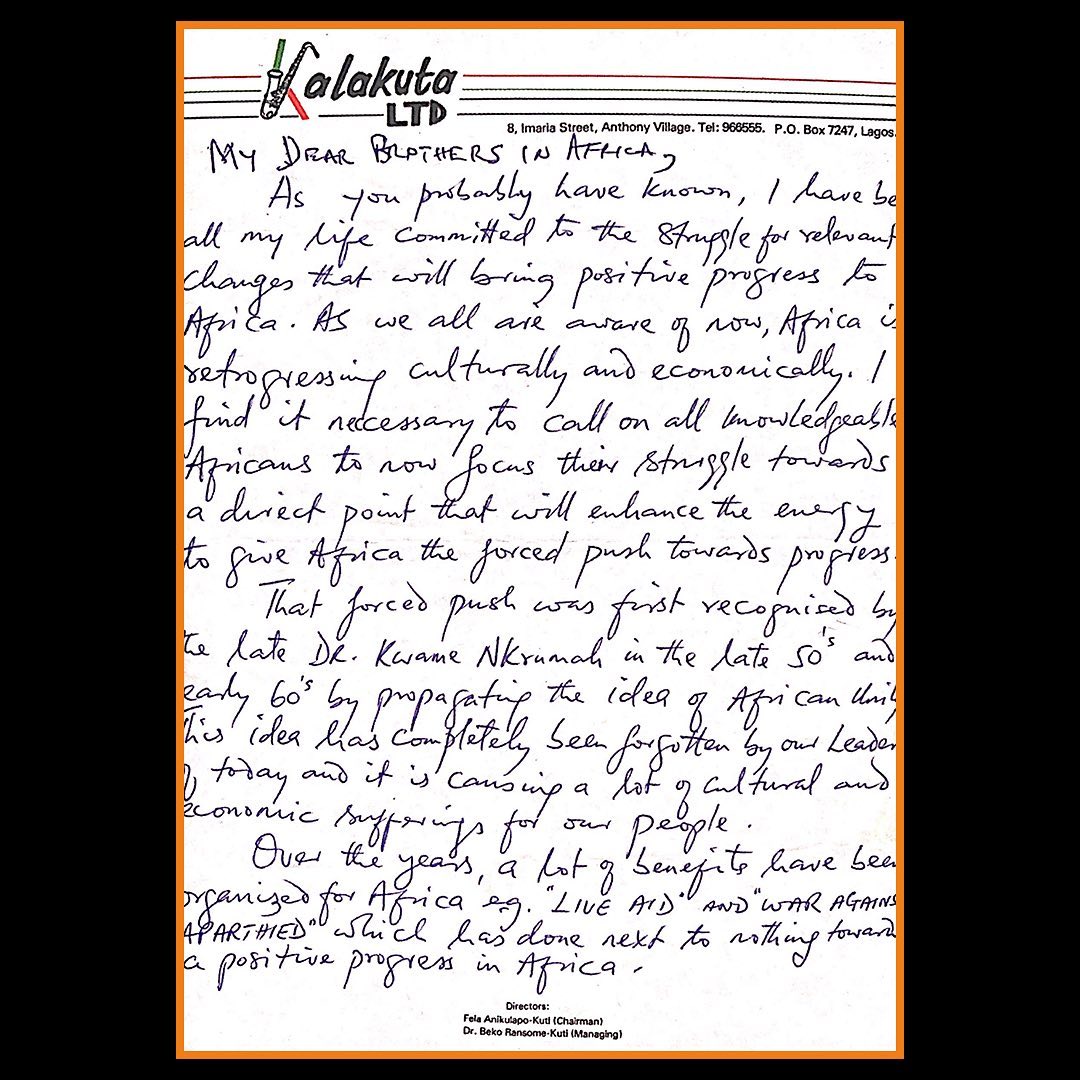 Kalakuta
LTD
8, Imaria Street, Anthony Village. Tel: 966555. P.O. Box 7247, Lagos.
MY DEAR BROTHERS IN AFRICA,
As you probably have known, I have be
all my life committed to the struggle for relevant
changes that will bring positive progress to
Africa. As we all are aware of now, Africa is
retrogressing culturally and economically. I
find it necessary to call on all knowledgeable
Africans to now focus their struggle towards
a direct point that will enhance the energy
to give Africa the forced push towards progress.
That forced push was first recognised by
the late DR. Kwame NKrumah in the late 50's and
early 60's by propagating the idea of African Unity
This idea has completely been forgotten by our Leader
of today and it is causing a lot of cultural and
economic sufferings for our people.
Over the years, a lot of benefits have been
organized for Africa eg. "LIVE AID" AND "WAR AGAINS
APARTHIED" which has done next to nothing toward
a positive progress in Africa.
Directors:
Fela Anikulapo-Kuti (Chairman)
Dr. Beko Ransome-Kuti (Managing)